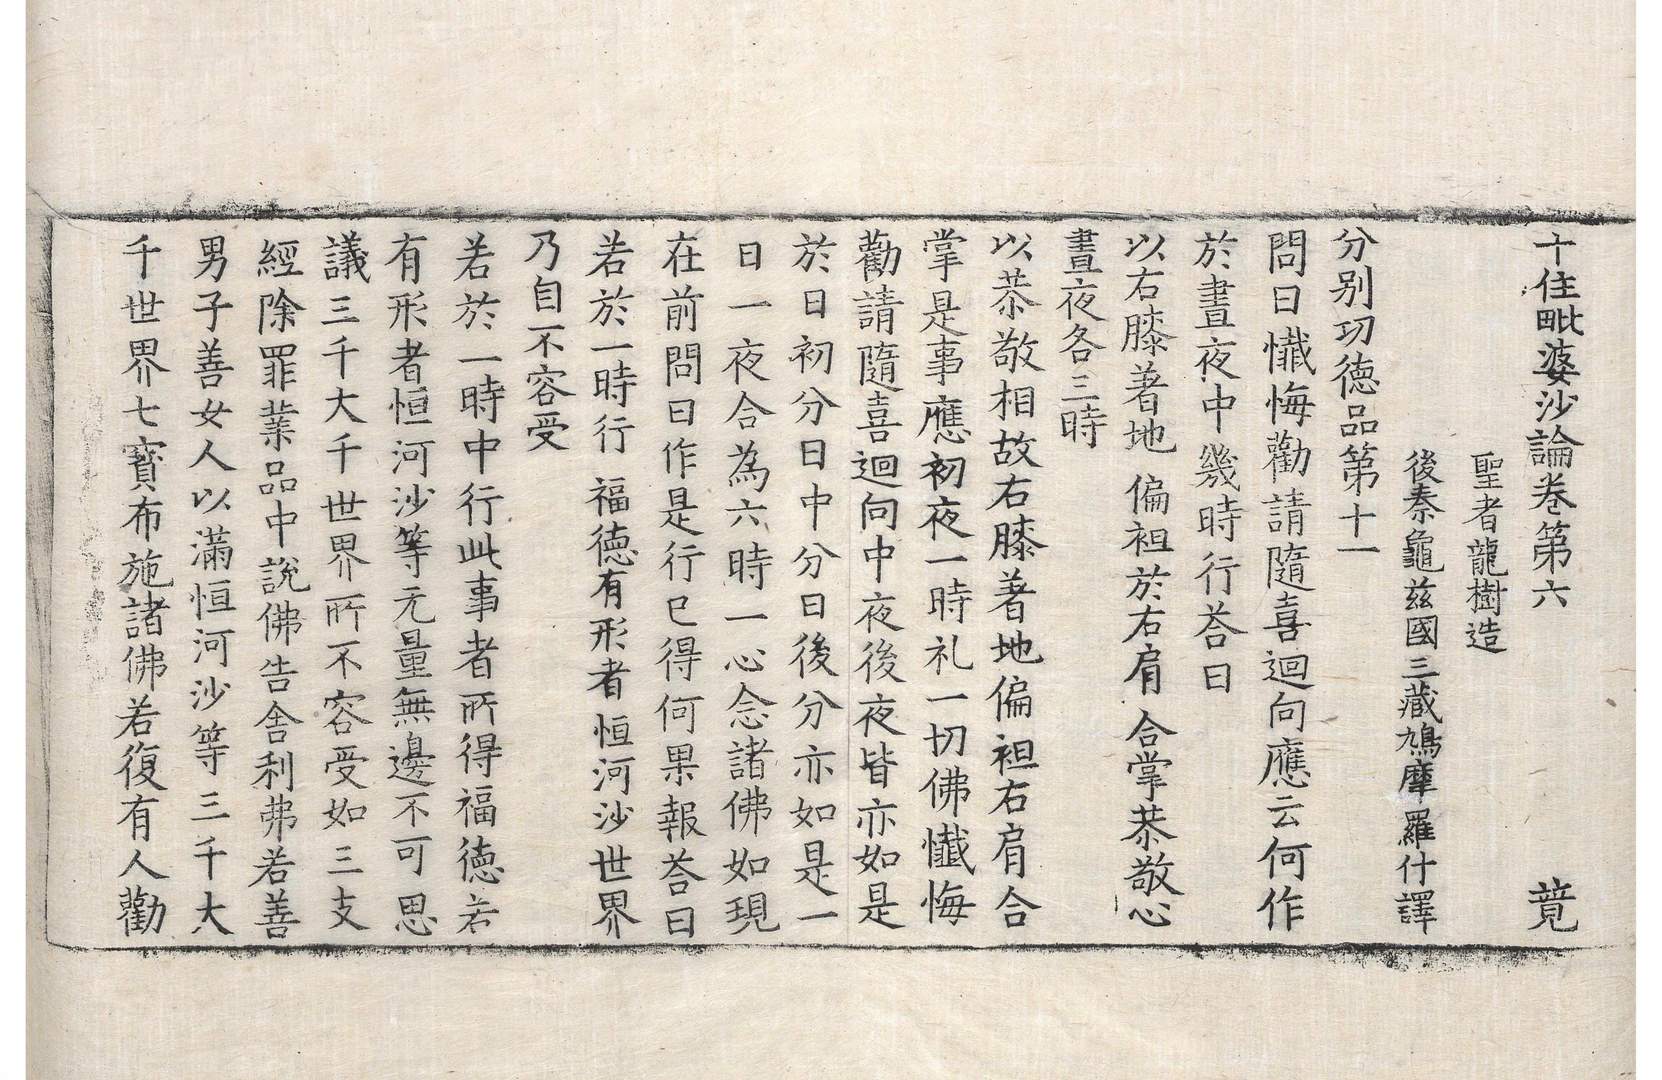 十住毗婆沙論卷第六 竟
聖者龍樹造
後秦龜茲國三藏鳩摩羅什譯
分別功德品第十一
問曰懺悔勸請隨喜迴向應云何作
於晝夜中幾時行荅曰
以右膝著地 偏袒於右肩 合掌恭敬心
晝夜各三時
以恭敬相故右膝著地偏袒右肩合
掌是事應初夜一時礼一切佛懺悔
勸請隨喜迴向中夜後夜皆亦如是
於日初分日中分日後分亦如是一
日一夜合為六時一心念諸佛如現
在前問曰作是行已得何果報荅曰
若於一時行 福德有形者 恒河沙世界
乃自不容受
若於一時中行此事者所得福德若
有形者恒河沙等无量無邊不可思
議三千大千世界所不容受如三支
經除罪業品中說佛告舍利弗若善
男子善女人以滿恒河沙等三千大
千世界七寶布施諸佛若復有人勸